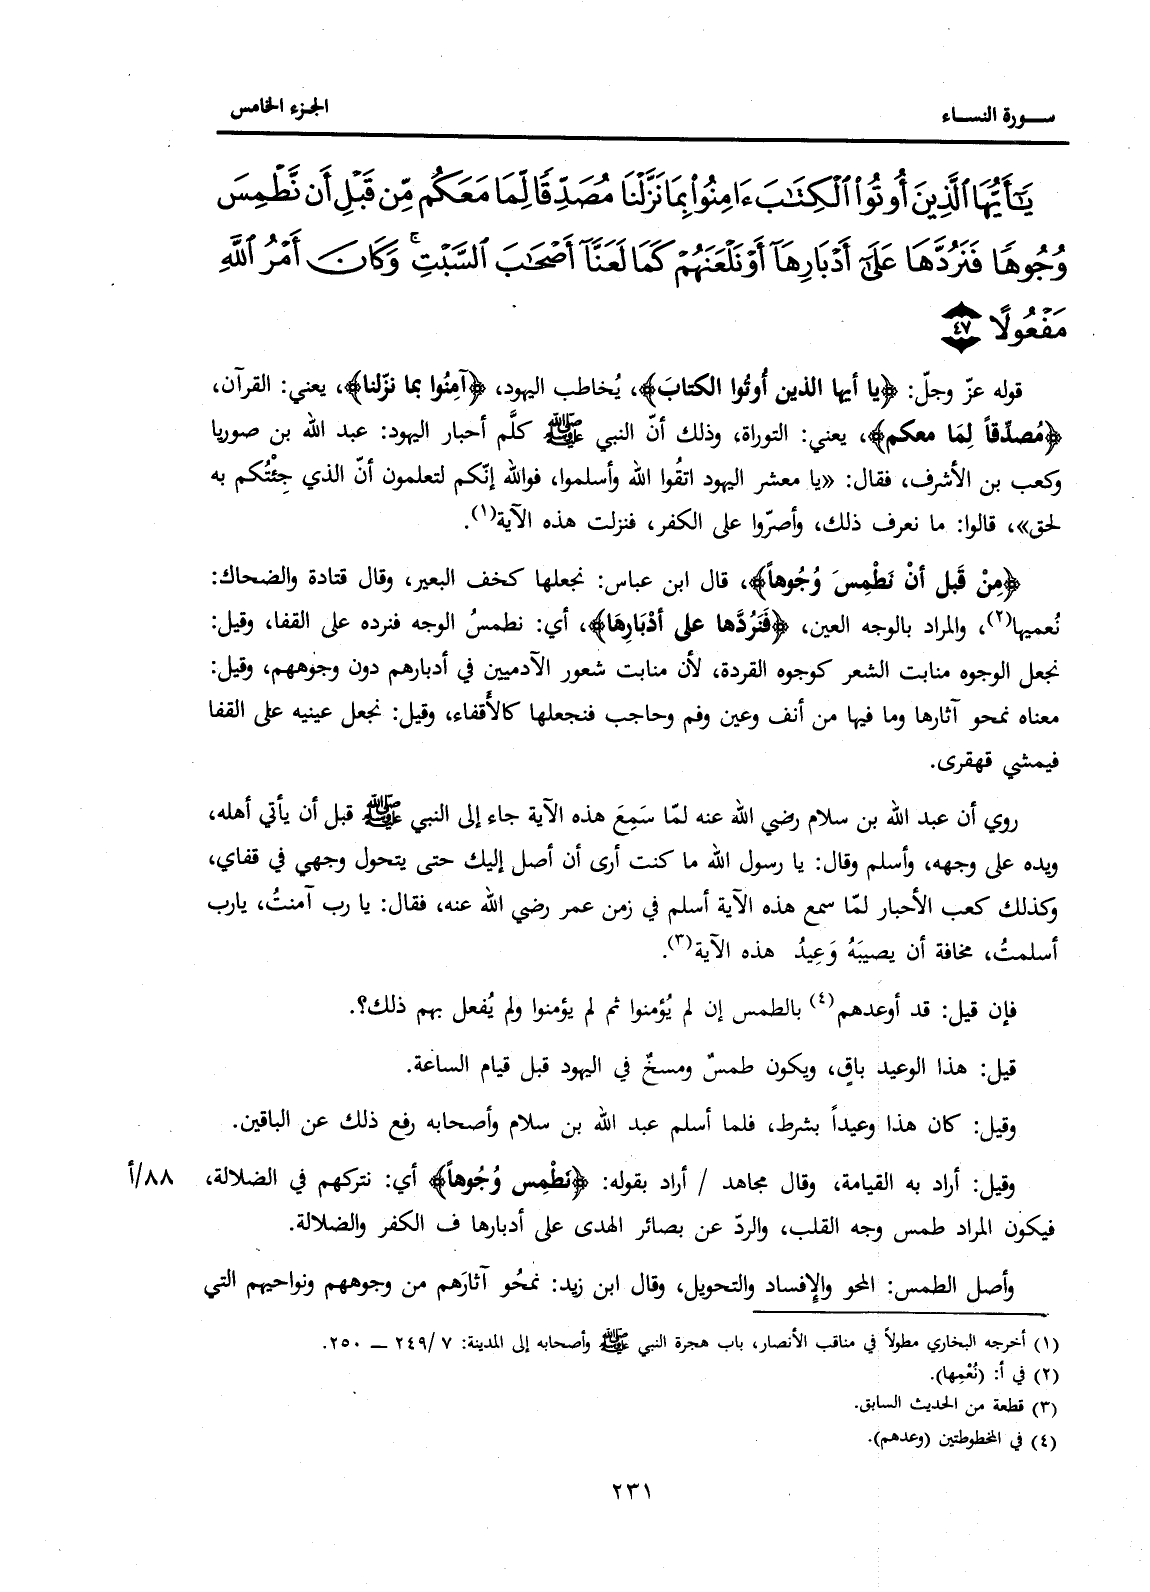 سورة النساء
الجزء الخامس
يَٰٓأَيُّهَا ٱلَّذِينَ أُوتُوا۟ ٱلْكِتَٰبَ ءَامِنُوا۟ بِمَا نَزَّلْنَا مُصَدِّقًا لِّمَا مَعَكُم مِّن قَبْلِ أَن نَّطْمِسَ
وُجُوهًا فَنَرُدَّهَا عَلَىٰٓ أَدْبَارِهَآ أَوْ نَلْعَنَهُمْ كَمَا لَعَنَّآ أَصْحَٰبَ ٱلسَّبْتِ ۚ وَكَانَ أَمْرُ ٱللَّهِ
مَفْعُولًا ٤٧
قوله عزّ وجلّ: ﴿يا أيها الذين أُوتُوا الكتابَ﴾، يُخاطب اليهود، ﴿آمِنُوا بما نزّلنا﴾، يعني: القرآن،
﴿مُصدِّقاً لِمَا معكم﴾، يعني: التوراة، وذلك أنّ النبي ﷺ كلَّم أحبار اليهود: عبد الله بن صوريا
وكعب بن الأشرف، فقال: «يا معشر اليهود اتقُوا الله وأسلموا، فوالله إنّكم لتعلمون أنّ الذي جِئْتُكم به
لحق»، قالوا: ما نعرف ذلك، وأصرّوا على الكفر، فنزلت هذه الآية(١).
﴿مِنْ قَبل أنْ نَطْمِسَ وُجُوهاً﴾، قال ابن عباس: نجعلها كخف البعير، وقال قتادة والضحاك:
نُعميها(٢)، والمراد بالوجه العين، ﴿فَنَرُدَّها على أدْبَارِهَا﴾، أي: نطمسُ الوجه فنرده على القفا، وقيل:
نجعل الوجوه منابت الشعر كوجوه القردة، لأن منابت شعور الآدميين في أدبارهم دون وجوههم، وقيل:
معناه نمحو آثارها وما فيها من أنف وعين وفم وحاجب فنجعلها كالأَقفاء، وقيل: نجعل عينيه على القفا
فيمشي قهقرى.
روي أن عبد الله بن سلام رضي الله عنه لمّا سَمِعَ هذه الآية جاء إلى النبي ﷺ قبل أن يأتي أهله،
ويده على وجهه، وأسلم وقال: يا رسول الله ما كنت أرى أن أصل إليك حتى يتحول وجهي في قفاي،
وكذلك كعب الأحبار لمّا سمع هذه الآية أسلم في زمن عمر رضي الله عنه، فقال: يا رب آمنتُ، يارب
أسلمتُ، مخافة أن يصيبَهُ وَعِيدُ هذه الآية(٣).
فإن قيل: قد أوعدهم(٤) بالطمس إن لم يُؤمنوا ثم لم يؤمنوا ولم يُفعل بهم ذلك؟.
قيل: هذا الوعيد باقٍ، ويكون طمسٌ ومسخٌ في اليهود قبل قيام الساعة.
وقيل: كان هذا وعيداً بشرط، فلما أسلم عبد الله بن سلام وأصحابه رفع ذلك عن الباقين.
وقيل: أراد به القيامة، وقال مجاهد / أراد بقوله: ﴿نَطْمِس وُجُوهاً﴾ أي: نتركهم في الضلالة، ٨٨/أ
فيكون المراد طمس وجه القلب، والردّ عن بصائر الهدى على أدبارها ف الكفر والضلالة.
وأصل الطمس: المحو والإفساد والتحويل، وقال ابن زيد: نمحُو آثارَهم من وجوههم ونواحيهم التي
(١) أخرجه البخاري مطولاً في مناقب الأنصار، باب هجرة النبي ﷺ وأصحابه إلى المدينة: ٧/٢٤٩ – ٢٥٠.
(٢) في أ: (نُعْمِها).
(٣) قطعة من الحديث السابق.
(٤) في المخطوطتين (وعدهم).
٢٣١